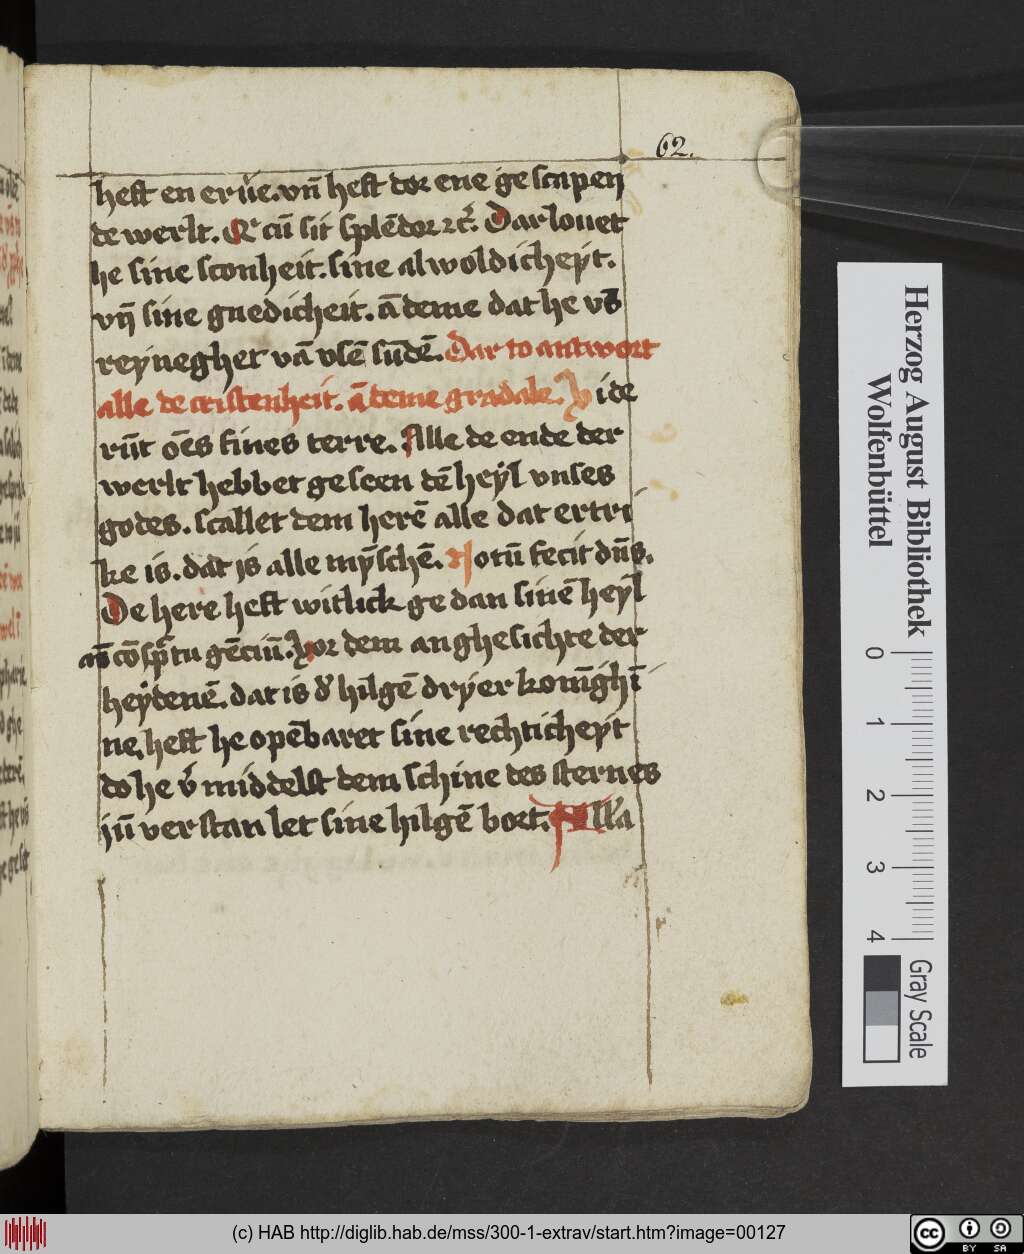 62.
heft en erv̈e. vn̄ heft dor ene ge scapen
de werlt. Qr cū sit splēdor ⁊cꝛ̄. Dar louet
he sine sconheit. sine al woldicheÿt.
vn̄ sine gnedicheit. ā deme dat he vs
reÿneghet vā vsē sūdē. Dar to antwort
alle de cristenheit. ā deme gradale. V ide
rūt oēs fines terre. Alle de ende der
werlt hebbet ge seen dē heÿl vnses
godes. scallet dem herē alle dat ertri
ke is. dat is alle mȳschē. Notū fecit dn̄s.
De here heft witlick ge dan sinē heÿl
an̄ cōsp̄tu gēciū. Vor dem anghesichte der
heÿdenē. dat is d' hilgē drÿer konīghī
ne, heft he opēbaret sine rechticheÿt
do he v̄ middelst dem schine des sternes
jū verstan let sine hilgē bort. All'a
Herzog August Bibliothek
Wolfenbüttel
0 1 2 3 4
Gray Scale
(c) HAB http://diglib.hab.de/mss/300-1-extrav/start.htm?image=00127
cc BY SA